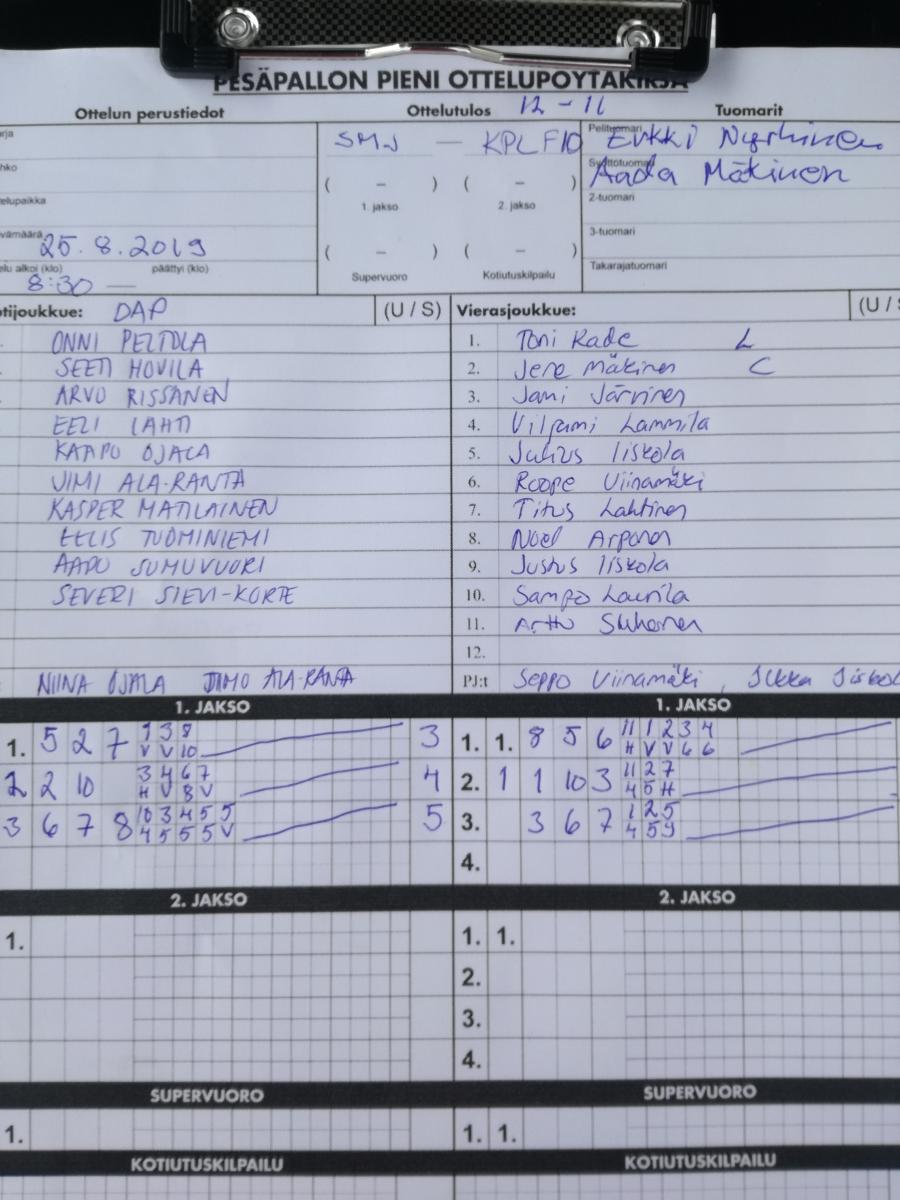 PESÄPALLON PIENI OTTELUPÖYTÄKIRJA
Ottelun perustiedot Ottelutulos 12 - 11 Tuomarit
rja SMJ — KPL F10 Pelituomari Erkki
hko ( – ) ( – ) Syöttötuomari Aada Mäkinen
elupaikka 1. jakso 2. jakso 2-tuomari
ivämäärä 25.8.2019 ( – ) ( – ) 3-tuomari
elu alkoi (klo) 8:30 — päättyi (klo) Supervuoro Kotiutuskilpailu Takarajatuomari
tijoukkue: DAP (U / S)
ONNI PELTOLA
SEETI HOVILA
ARVO RISSANEN
EELI LAHTI
KAAPO OJALA
JIMI ALA-RANTA
KASPER MATILAINEN
EELIS TUOMINIEMI
AAPO SUMUVUORI
SEVERI SIEVI-KORTE
NIINA OJALA TIMO ALA-RANTA
Vierasjoukkue: (U / S
1. Toni Kade L
2. Jere Mäkinen C
3. Jami Järvinen
4. Viljami Lammila
5. Julius Iiskola
6. Roope Viinamäki
7. Titus Lahtinen
8. Noel Arponen
9. Justus Iiskola
10. Sampo Laurila
11. Arttu
12.
PJ:t Seppo Viinamäki, Ilkka Iiskol
1. JAKSO
1. 5 2 7 1 3 8 3
V V 10
2 2 10 3 4 6 7 4
H V 8 V
3 6 7 8 10 3 4 5 5 5
4 5 5 5 V
1. JAKSO
1. 1. 8 5 6 11 1 2 3 4
H V V 6 6
2. 1 1 10 3 11 2 7
4 5 H
3. 3 6 7 1 2 5
4 5 9
4.
2. JAKSO
1.
2. JAKSO
1. 1.
2.
3.
4.
SUPERVUORO SUPERVUORO
1. 1. 1.
KOTIUTUSKILPAILU KOTIUTUSKILPAILU